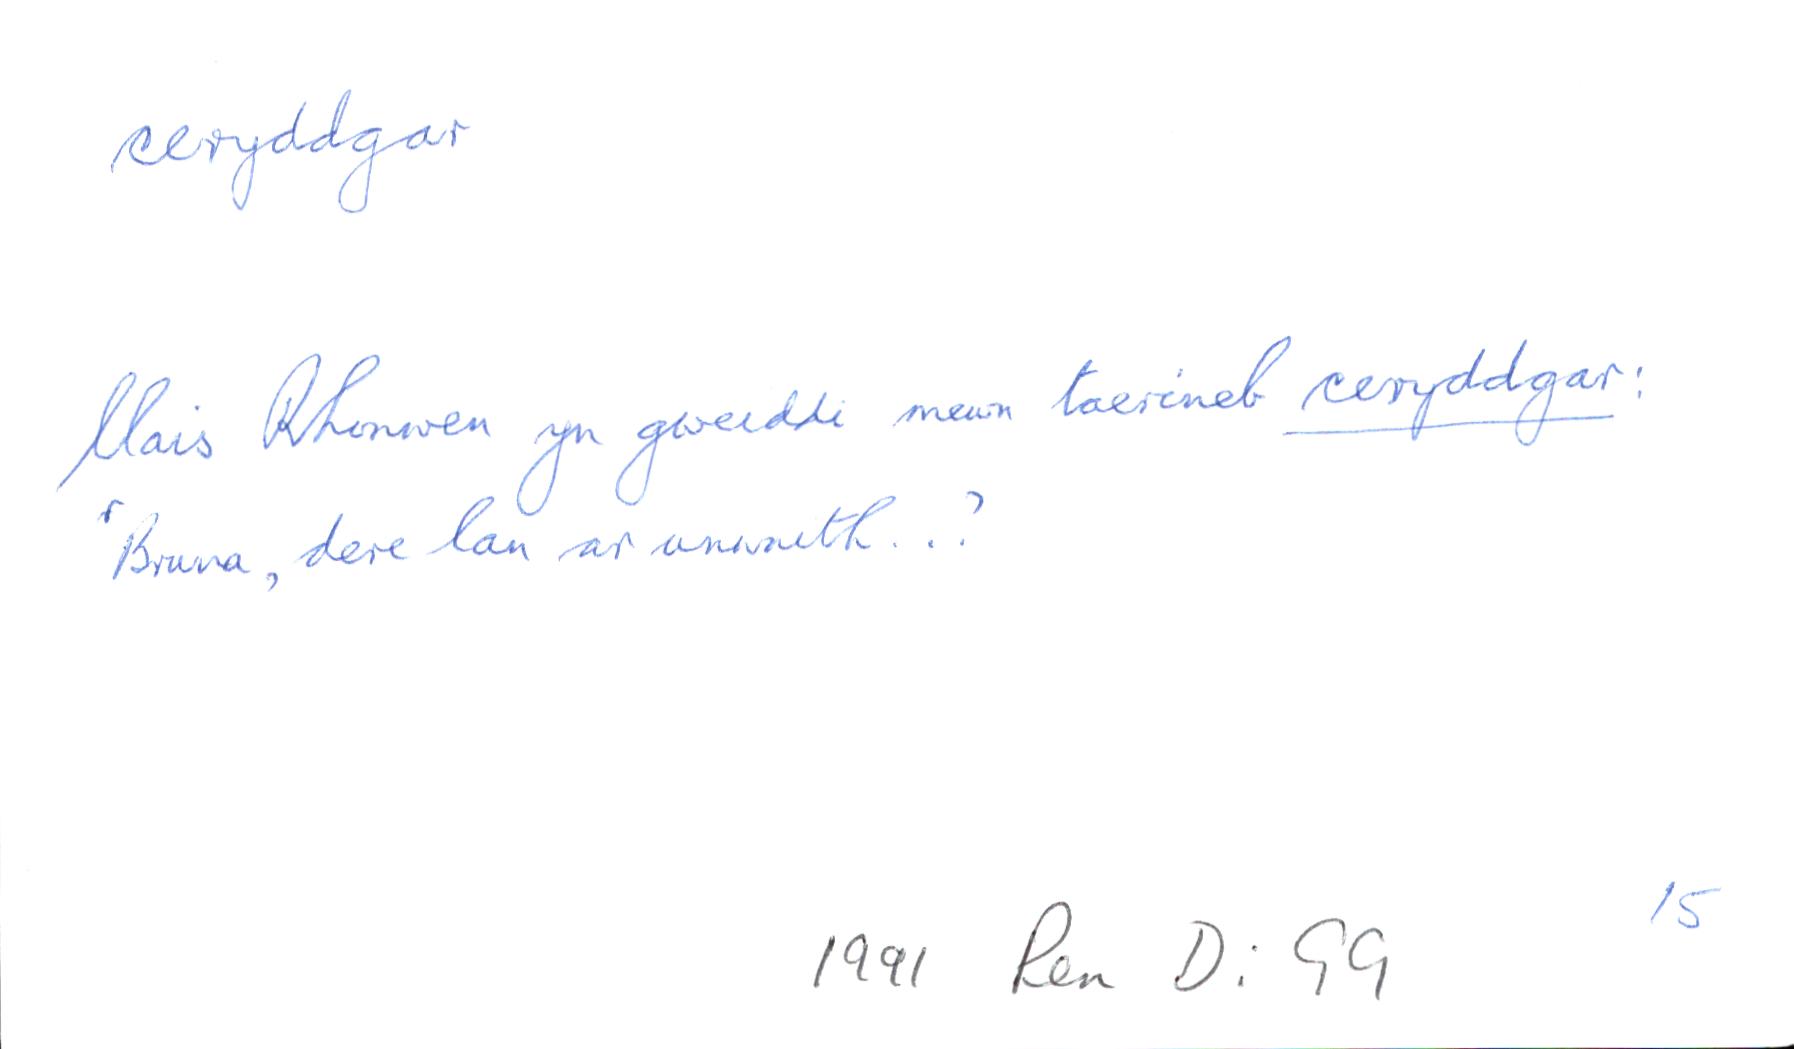 ceryddgar
llais Rhonwen yn gweiddi mewn taerineb ceryddgar:
'Bruna, dere lan ar unwaith...'
15
1991 Ren D: GG